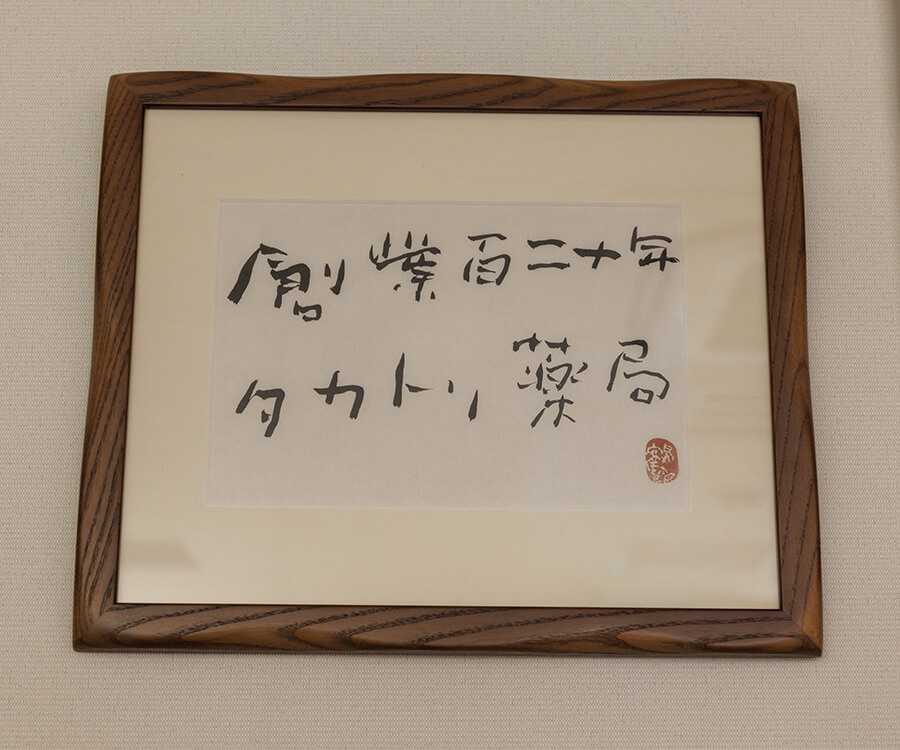 創業百二十年
タカトリ薬局